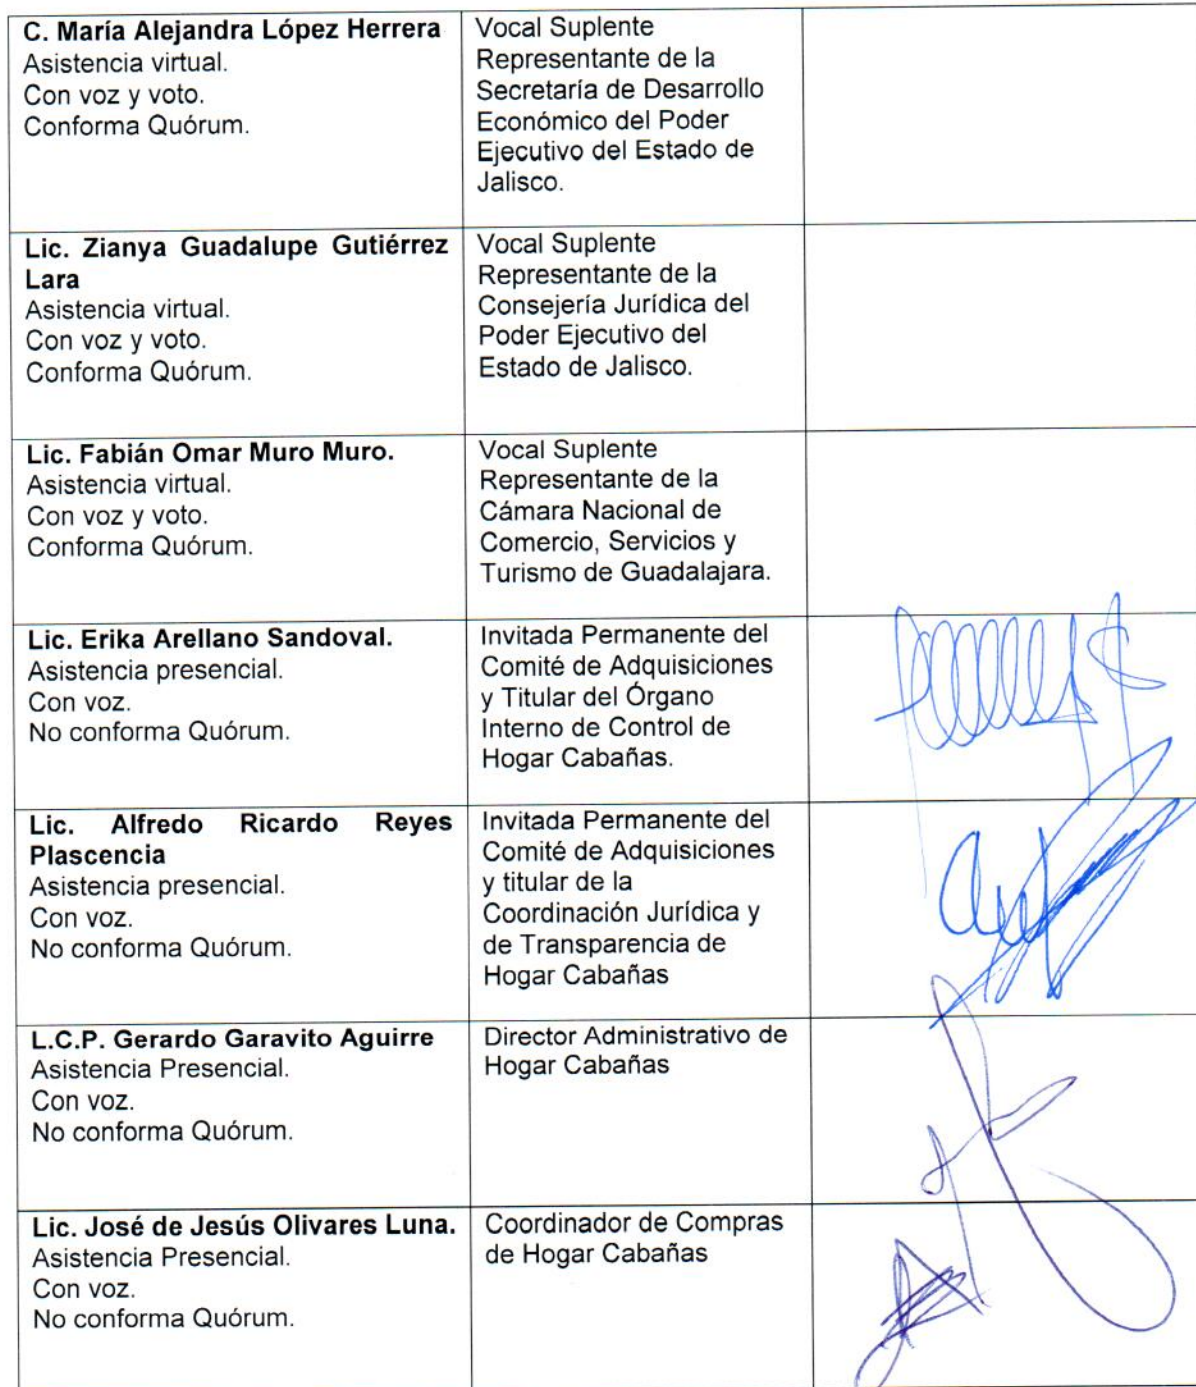 C. María Alejandra López Herrera
Asistencia virtual.
Con voz y voto.
Conforma Quórum.
Vocal Suplente
Representante de la
Secretaría de Desarrollo
Económico del Poder
Ejecutivo del Estado de
Jalisco.
Lic. Zianya Guadalupe Gutiérrez
Lara
Asistencia virtual.
Con voz y voto.
Conforma Quórum.
Vocal Suplente
Representante de la
Consejería Jurídica del
Poder Ejecutivo del
Estado de Jalisco.
Lic. Fabián Omar Muro Muro.
Asistencia virtual.
Con voz y voto.
Conforma Quórum.
Vocal Suplente
Representante de la
Cámara Nacional de
Comercio, Servicios y
Turismo de Guadalajara.
Lic. Erika Arellano Sandoval.
Asistencia presencial.
Con voz.
No conforma Quórum.
Invitada Permanente del
Comité de Adquisiciones
y Titular del Órgano
Interno de Control de
Hogar Cabañas.
Lic. Alfredo Ricardo Reyes
Plascencia
Asistencia presencial.
Con voz.
No conforma Quórum.
Invitada Permanente del
Comité de Adquisiciones
y titular de la
Coordinación Jurídica y
de Transparencia de
Hogar Cabañas
L.C.P. Gerardo Garavito Aguirre
Asistencia Presencial.
Con voz.
No conforma Quórum.
Director Administrativo de
Hogar Cabañas
Lic. José de Jesús Olivares Luna.
Asistencia Presencial.
Con voz.
No conforma Quórum.
Coordinador de Compras
de Hogar Cabañas